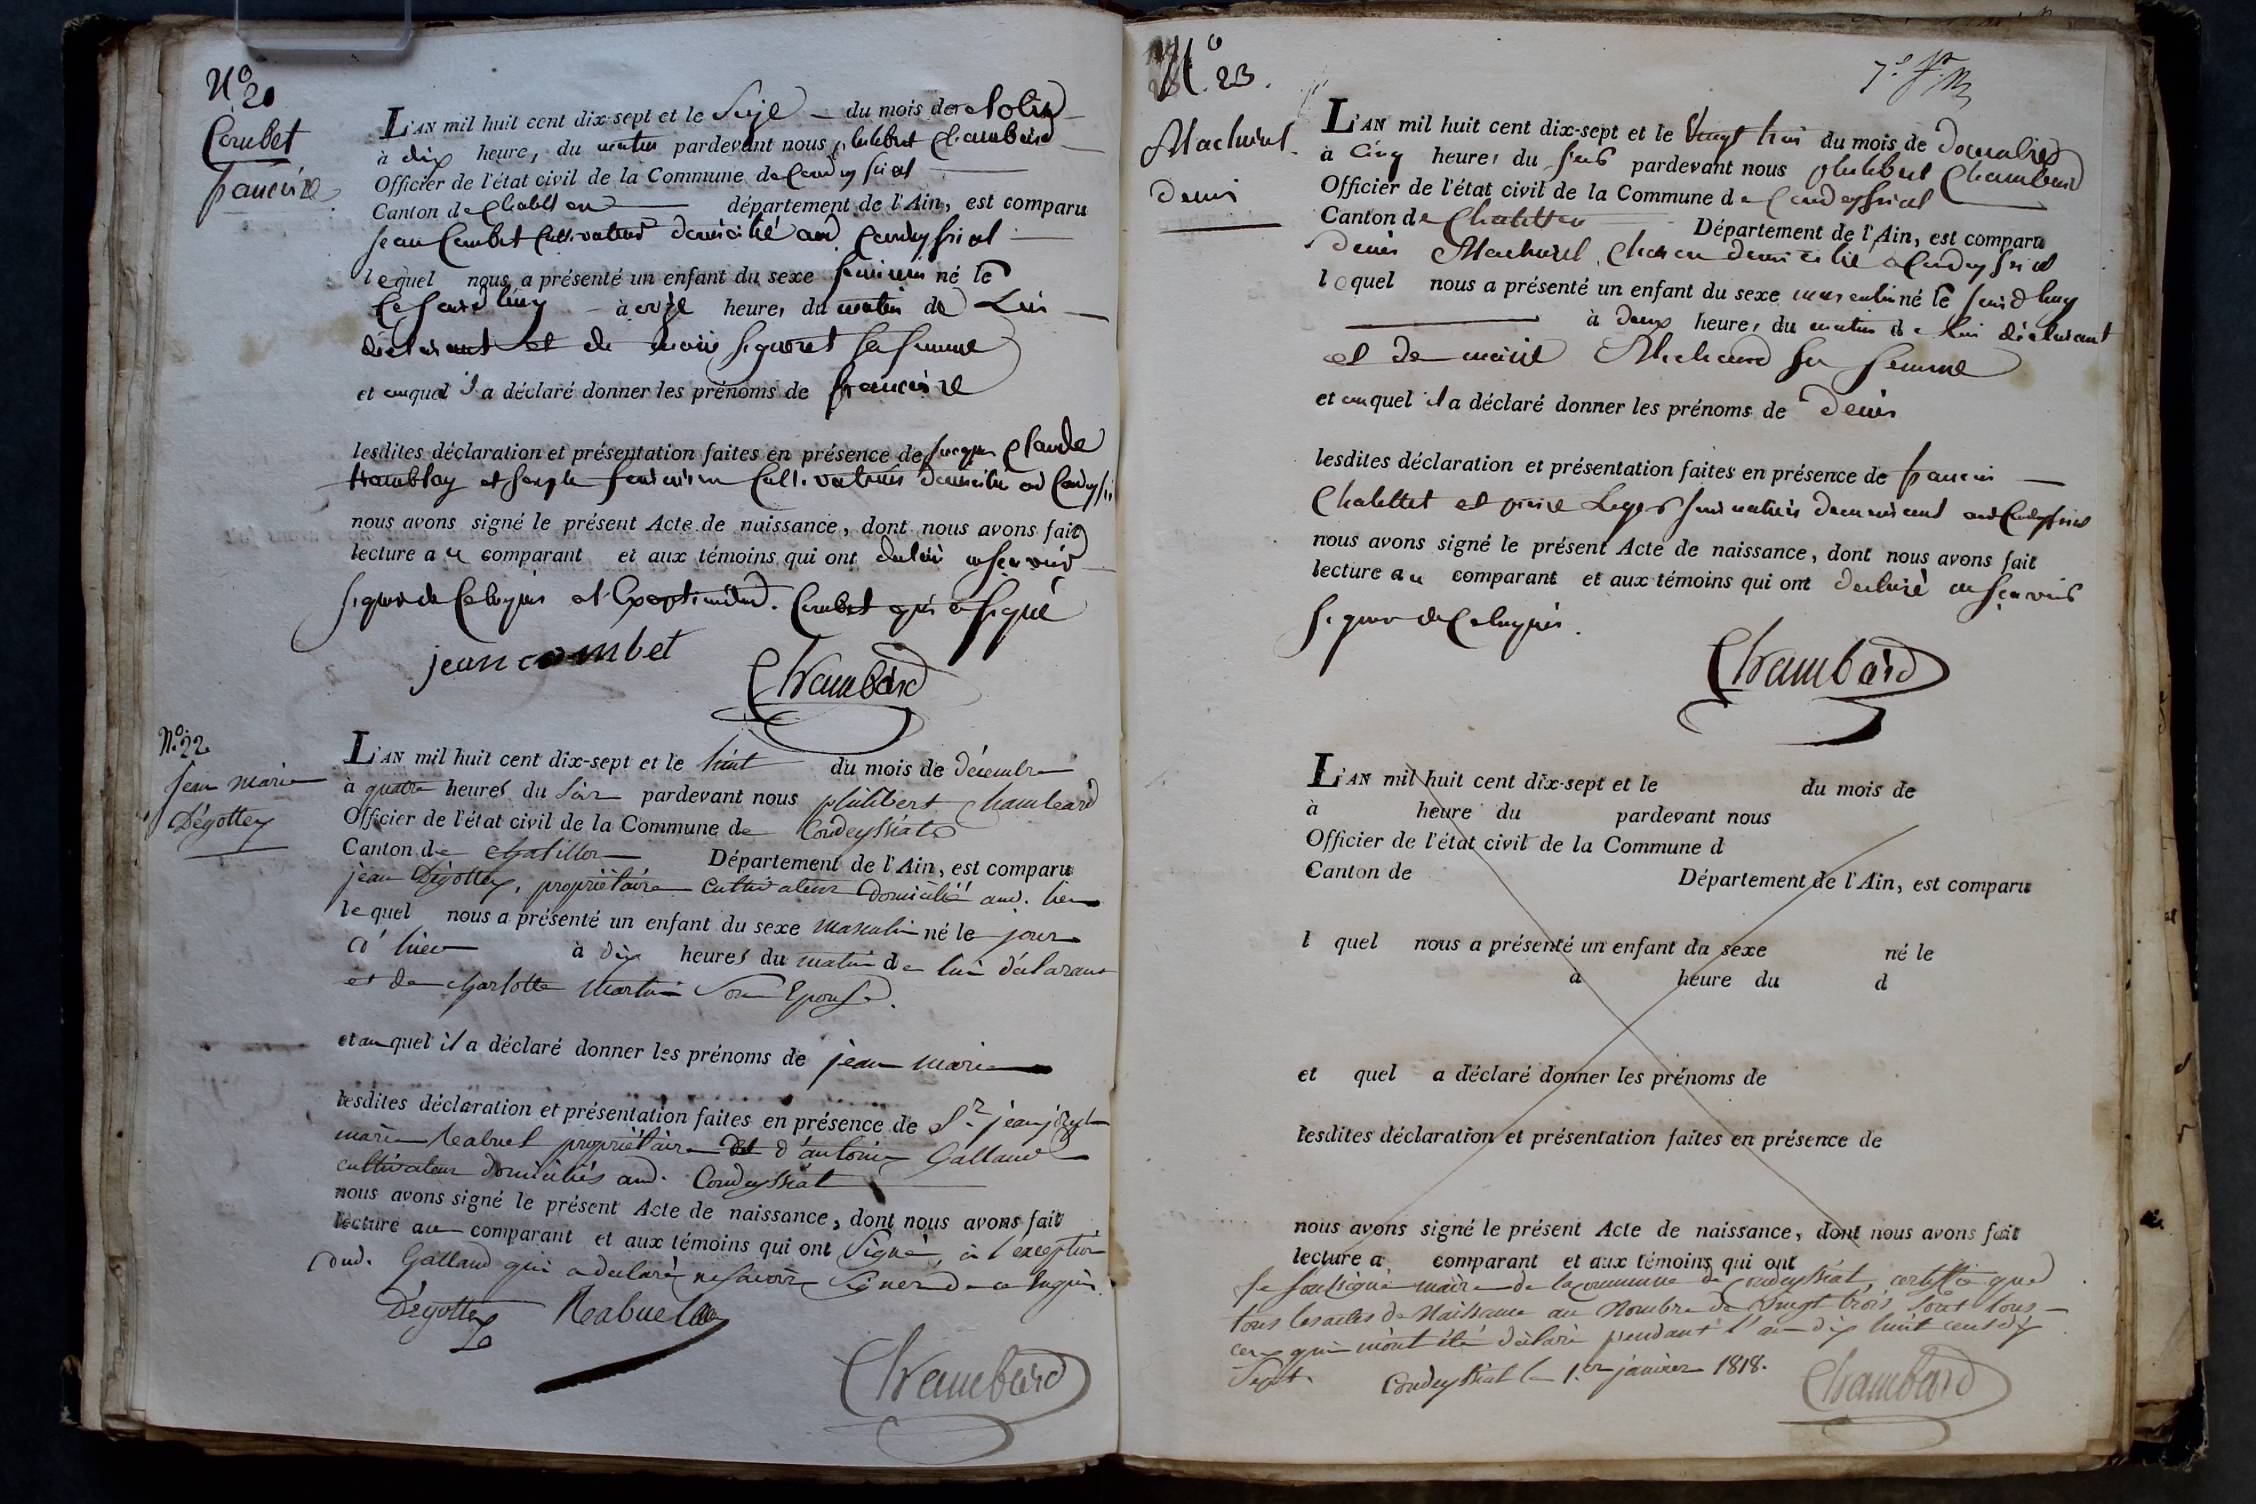 N.o 20
Combet
francoise
L'AN mil huit cent dix-sept et le Seize du mois de
à dix heure, du matin pardevant nous philibert Chambard
Officier de l'état civil de la Commune de Condeyssiat
Canton de Chatillon département de l'Ain, est comparu
jean Combet Cultivateur domicilié aud. Condeyssiat
lequel nous a présenté un enfant du sexe feminin né le
à onze heure, du matin de Lui
declarant et de marie Signoret sa femme
et auquel il a déclaré donner les prénoms de francoise
lesdites déclaration et présentation faites en présence de Claude
tramblay et Cultivateurs
nous avons signé le présent Acte de naissance, dont nous avons fait
lecture au comparant et aux témoins qui ont déclaré ne Scavoir
signer de Ce Combet qui a signé
jean combet
Chambard
N.o 22
Jean marie
Dégottey
L'AN mil huit cent dix-sept et le huit du mois de décembre
à quatre heures du Soir pardevant nous philibert Chambard
Officier de l'état civil de la Commune de Condeyssiat
Canton de Chatillon Département de l'Ain, est comparu
jean Dégottey, propriétaire cultivateur domicilié aud. lieu
lequel nous a présenté un enfant du sexe masculin né le jour
d'hier à dix heures du matin de lui déclarant
et de charlotte Martin Son Epouse.
et auquel il a déclaré donner les prénoms de jean marie
lesdites déclaration et présentation faites en présence de Sr. jean joseph
marie Rabuel propriétaire d'antoine Galland
cultivateur domiciliés aud. Condeyssiat
nous avons signé le présent Acte de naissance, dont nous avons fait
lecture au comparant et aux témoins qui ont Signé, à l'exception
dud. Galland qui a declaré ne Savoir Signer de ce enquis.
Dégottey Rabuel
Chambard
N.o 23.
denis
L'AN mil huit cent dix-sept et le Vingt huit du mois de
à Cinq heures du Soir pardevant nous philibert Chambard
Officier de l'état civil de la Commune de Condeyssiat
Canton de Chatillon Département de l'Ain, est comparu
denis domicilié a Condeyssiat
lequel nous a présenté un enfant du sexe masculin né le
à deux heure, du matin de lui déclarant
et de marie Michaud Sa femme
et auquel il a déclaré donner les prénoms de denis
lesdites déclaration et présentation faites en présence de francois
Chatellet et
nous avons signé le présent Acte de naissance, dont nous avons fait
lecture au comparant et aux témoins qui ont declaré ne Scavoir
signer de Ce enquis.
Chambard
L'AN mil huit cent dix-sept et le du mois de
à heure du pardevant nous
Officier de l'état civil de la Commune d
Canton de Département de l'Ain, est comparu
l quel nous a présenté un enfant du sexe né le
à heure du d
et quel a déclaré donner les prénoms de
lesdites déclaration et présentation faites en présence de
nous avons signé le présent Acte de naissance, dont nous avons fait
lecture a comparant et aux témoins qui ont
Je Soussigné maire de la commune de Condeyssiat, certifie que
tous les actes de Naissance au Nombre de Vingt trois Sont tous
ceux qui m'ont été déclaré pendant l'an dix huit cent dix
Sept. Condeyssiat le 1.er janvier 1818.
Chambard